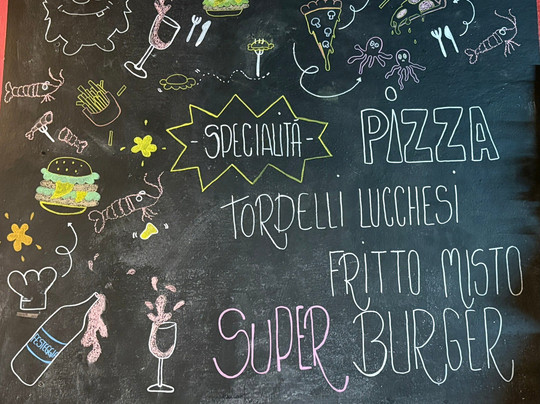 - SPECIALITÀ -
PIZZA
TORDELLI LUCCHESI
FRITTO MISTO
SUPER BURGER